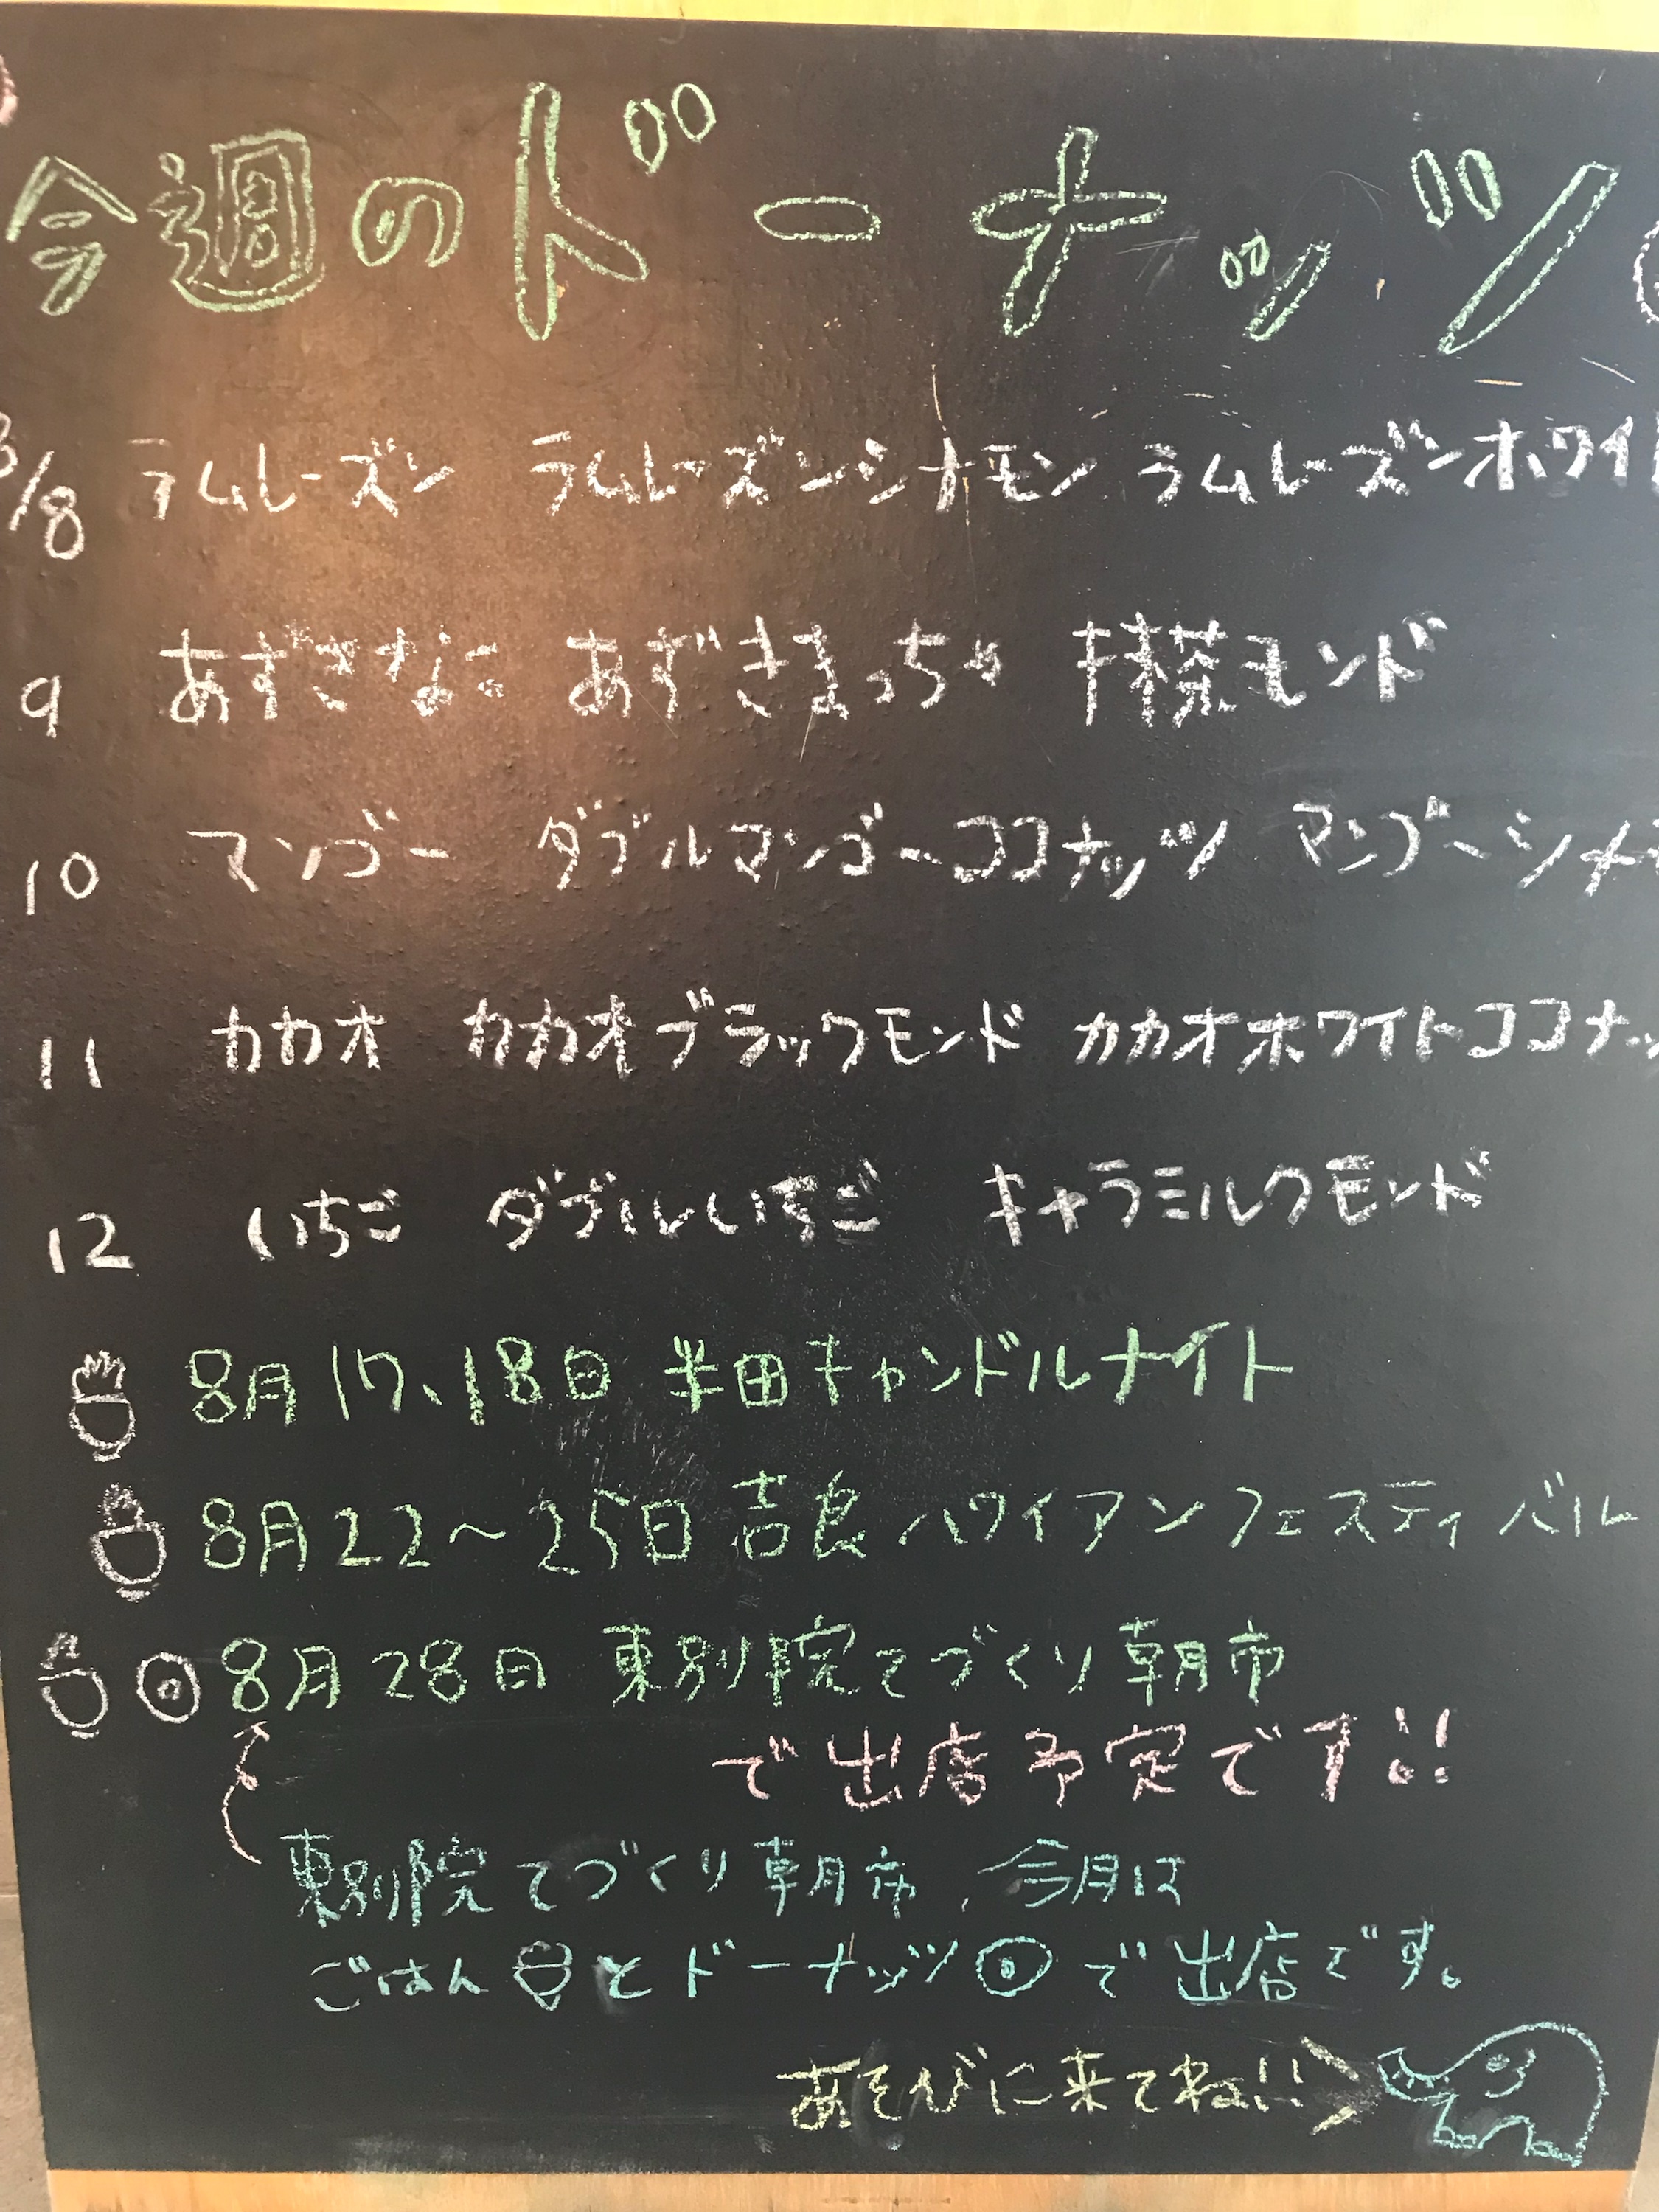 今週のドーナッツ
/8 ラムレーズン ラムレーズンシナモン ラムレーズンホワイト
9 あずきなこ あずきまっちゃ 抹茶モンド
10 マンゴー ダブルマンゴーココナッツ マンゴーシナモ
11 カカオ カカオブラックモンド カカオホワイトココナッ
12 いちご ダブルいちご キャラミルクモンド
8月17、18日 半田キャンドルナイト
8月22〜25日 吉良ハワイアンフェスティバル
8月28日 東別院てづくり朝市
で出店予定です!!
東別院てづくり朝市、今月は
ごはんとドーナッツで出店です。
あそびに来てね!!